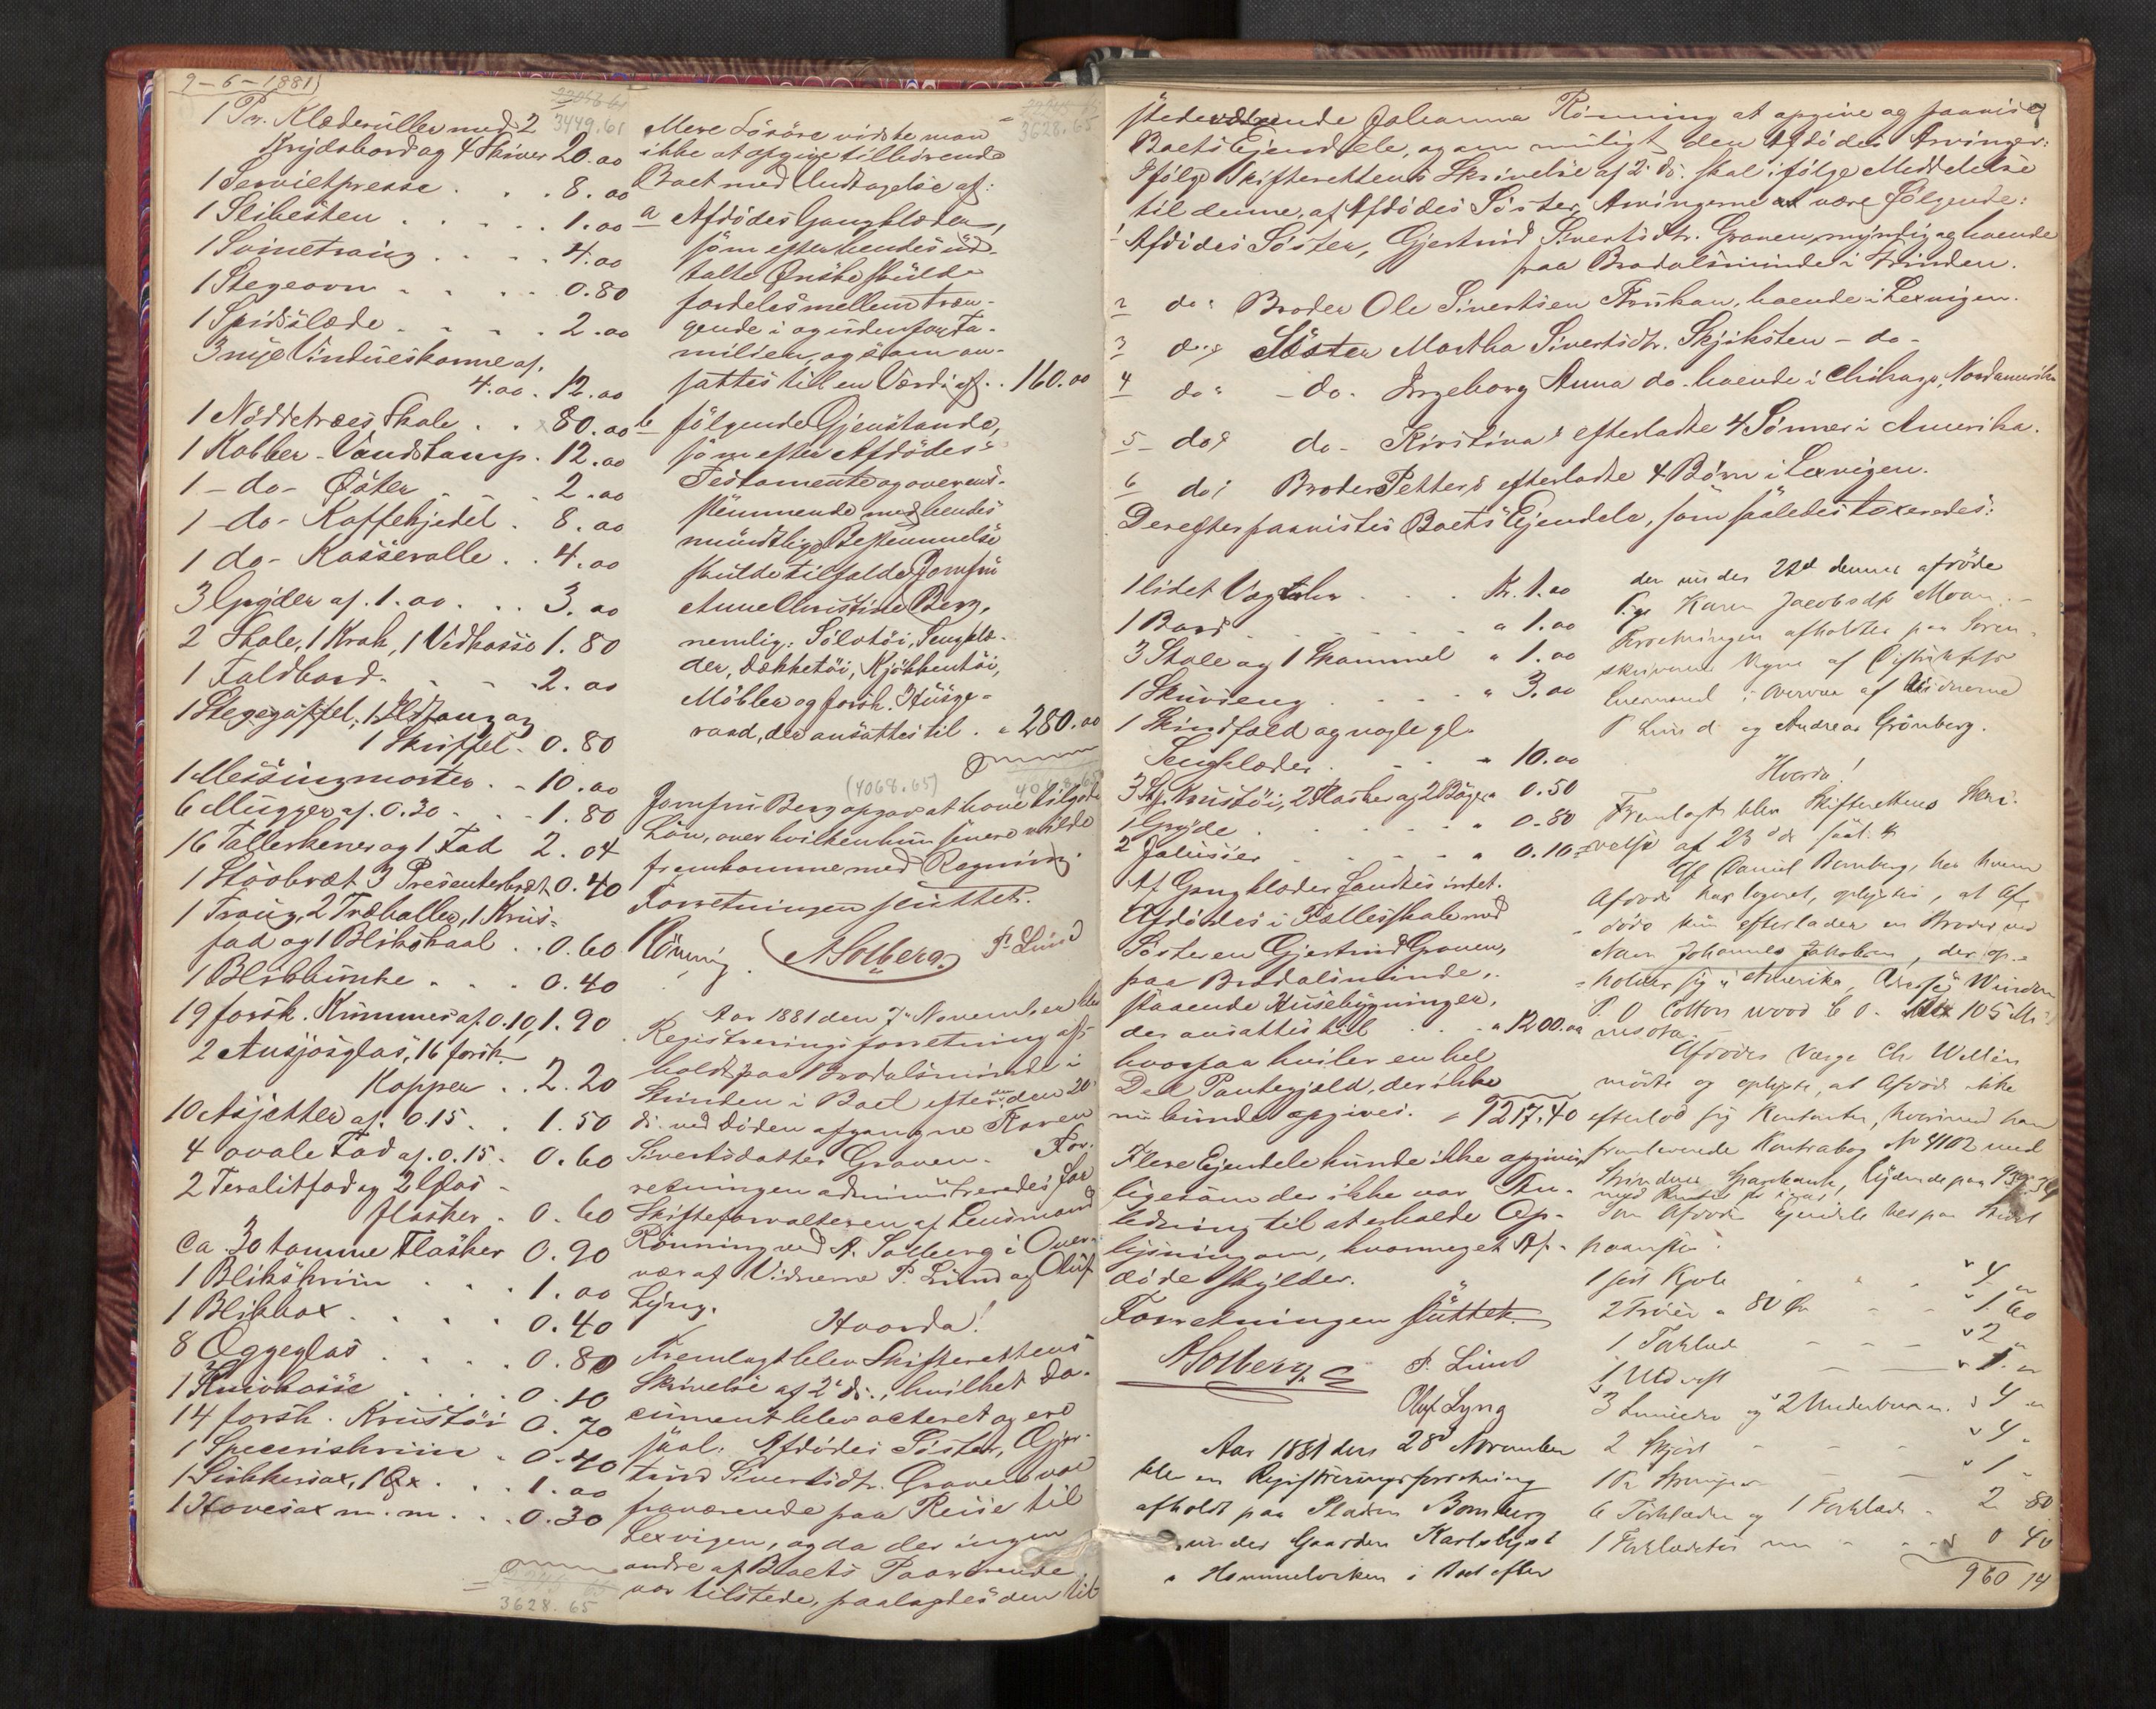 9-6-1881)
3449.61
1 Pr. Klæderuller med 2
Krydsbord og 4 Skiver 20.00
1 Servietpresse . . . 8.00
1 Slibesten . . . . . 1.00
1 Svinetraug . . . . 4.00
1 Stegeovn . . . . . 0.80
1 Spidsslæde . . . . 2.00
3 nye Vindueskarme af.
4.00 . 12.00
1 Nöddetræes Skale . . 80.00
1 Kobber-Vandstamp . 12.00
1 - do - Öster . . . 2.00
1 - do - Kaffekjedel . 8.00
1 do - Kasserolle . . 4.00
3 Gryder af. 1.00 . . . 3.00
2 Stole, 1 Krak, 1 Vedkasse 1.80
1 Faldbord . . . . 2.00
1 Stegegaffel, 1 Ildtang og
1 Skuffel . 0.80
1 Messingmorter . . 10.00
6 Mugger af. 0.30 . . . 1.80
16 Tallerkener og 1 Fad 2.04
1 Stövbræt 3 Presenterbræt 0.40
1 Traug, 2 Træhaller, 1 Krus-
fad og 1 Blikskaal . . 0.60
1 Blikbunke . . . 0.40
19 forsk. Kummer af. 0.10, 1.90
2 Ansjosglas, 16 forsk.
Kopper . . 2.20
10 Asjetter af. 0.15 . . 1.50
4 ovale Fad af. 0.15 . 0.60
2 Teralitfad og 2 Glas-
flasker . 0.60
Ca 30 tomme Flasker 0.90
1 Blikskriin . . . 1.00
1 Blikbox . . . . . 0.40
8 Æggeglas . . . . 0.80
1 Knivkasse . . . . 0.10
14 forsk. Krustöi 0.70
1 Speceriskriin . . 0.40
1 Sukkersax, 1 Öx . . . 1.00
1 Havesax m.m. . . . 0.30
3628.65
3628.65
Mere Lösöre vidste man
ikke at opgive tilhörende
Boet med Undtagelse af:
a Afdödes Gangklæder,
som efter hendes ud-
talte Ønske skulde
fordeles mellem træn-
gende i og udenfor Fa-
milien, og som an-
sattes til en Værdi af . . 160.00
b fölgende Gjenstande,
som efter Afdödes
Testamente og overens-
stemmende med hendes
mundtlige Bestemmelse
skulde tilfalde Jomfru
Anne Christine Berg,
nemlig: Sölvtöi, Sengklæ-
der, Dækketöi, Kjökkentöi,
Möbler og forsk. Husge-
raad, der ansattes til . " 280.00
(4068.65) 4068.65
Jomfru Berg opgav at have tilgode
Lön, over hvilken hun senere vilde
fremkomme med Regning.
Forretningen sluttet.
Rönning. ASolberg. P. Lund
Aar 1881 den 7de November blev
Registreringsforretning af-
holdt paa Brodalsminde i
Strinden i Boet efter den den 20
ds. ved Döden afgangne Karen
Sivertsdatter Graven. For-
retningen administreredes for
Skifteforvalteren af Lensmand
Rönning ved A. Solberg i Over-
vær af Vidnerne P. Lund og Oluf
Lyng.
Hvorda!
Fremlagt blev Skifterettens
Skrivelse af 2 ds., hvilket Do-
cument blev acteret og ero
saal. Afdödes Söster, Gjer-
trud Sivertsdtr. Graven var
fraværende paa Reise til
Lexvigen, og da der ingen
andre af Boets Paarörende
var tilstede, paalagdes den til-
stedeværende Johanna Rönning at opgive og paavise
Boets Ejendele, og om muligt den Afdödes Arvinger:
Ifölge Skifterettens Skrivelse af 2 ds. skal ifölge Meddelelse
til denne, af Afdödes Söster, Arvingerne at være fölgende:
1 Afdödes Söster, Gjertrud Sivertsdtr. Graven, myndig og boende
paa Brodalsminde i Strinden.
2 do: Broder Ole Sivertsen Truhan, boende i Lexvigen.
3 do: Söster Martha Sivertsdtr. Skjiksten - do -
4 do: - do. Ingeborg Anna do. boende i Chikago, Nordamerika
5 do: do - Kirstina: efterladte 4 Sönner i Amerika.
6 do: Broder Petter: efterladte 4 Börn i Lexvigen.
Derefter paavistes Boets Ejendele, som saaledes taxeredes:
1 lidet Vægtuhr . . . Kr. 1.00
1 Bord . . . . . . " 1.00
3 Stole og 1 Skammel " 1.00
1 Skuvseng . . . . " 3.00
1 Skindfæld og nogle gl.
Sengklæder . . . . " 10.00
3 Stk. Krustöi, 2 Flasker og 2 Böger " 0.50
1 Gryde . . . . . . " 0.80
2 Jalusier . . . . . " 0.10
Af Gangklæder fandtes intet.
Afdödes i Fællesskab med
Sösteren Gjertrud Graven,
paa Brodalsminde,
staaende Husebygninger,
der ansattes til . . . " 1200.00
hvorpaa hviler en hel
Del Pantegjæld, der ikke
nu kunde opgives. " 1217.40
Flere Ejendele kunde ikke opgives,
ligesom der ikke var An-
ledning til at erholde Op-
lysning om, hvormeget Af-
døde skylder.
Forretningen sluttet.
ASolberg. P. Lund
Oluf Lyng
Aar 1881 den 28d November
blev en Registreringsforretning
afholdt paa Pladsen Bomberg
under Gaarden Karlslyst
i Hommelviken i Boet efter
den under 22d dennes afdöde
Pige Karen Jacobsdtr Moan.
Forretningen afholdtes paa Soren-
skriverens Vegne af
Lensmand i Overvær af Vidnerne
P. Lund og Andreas Grönberg.
Hvorda!
Fremlagt blev Skifterettens Skri-
velse af 23d ds saal.
Daniel Bomberg, hos hvem
Afdöde har logeret, oplyste, at Af-
döde kun efterlader en Broder ved
Navn Johannes Jakobsen, der op-
holder sig i Amerika, Adresse Windom
P. O Cotton wood C O. 105 Mi
nesota.
Afdödes Værge Ch. Wellén
mödte og oplyste, at Afdöde ikke
efterlod sig Kontanter, hvorimod han
fremleverede Kontrabog No 4102 med
Strindens Sparebank, lydende paa
Som Afdödes Ejendele her paa Stedet
paavistes:
1 sort Kjole . . . " 4 "
2 Tröier a 80 Ør - - " 1.60
1 Forklæde - - - " 2 "
1 Uldvest - - " 1 "
3 Linneder og 2 Underbuxer " 4 "
2 Skjört - - - " 4 "
1 Pr Strömper - " 1 "
6 Törklæder og 1 Forklæde " 2 80
1 " 0 40
960 14